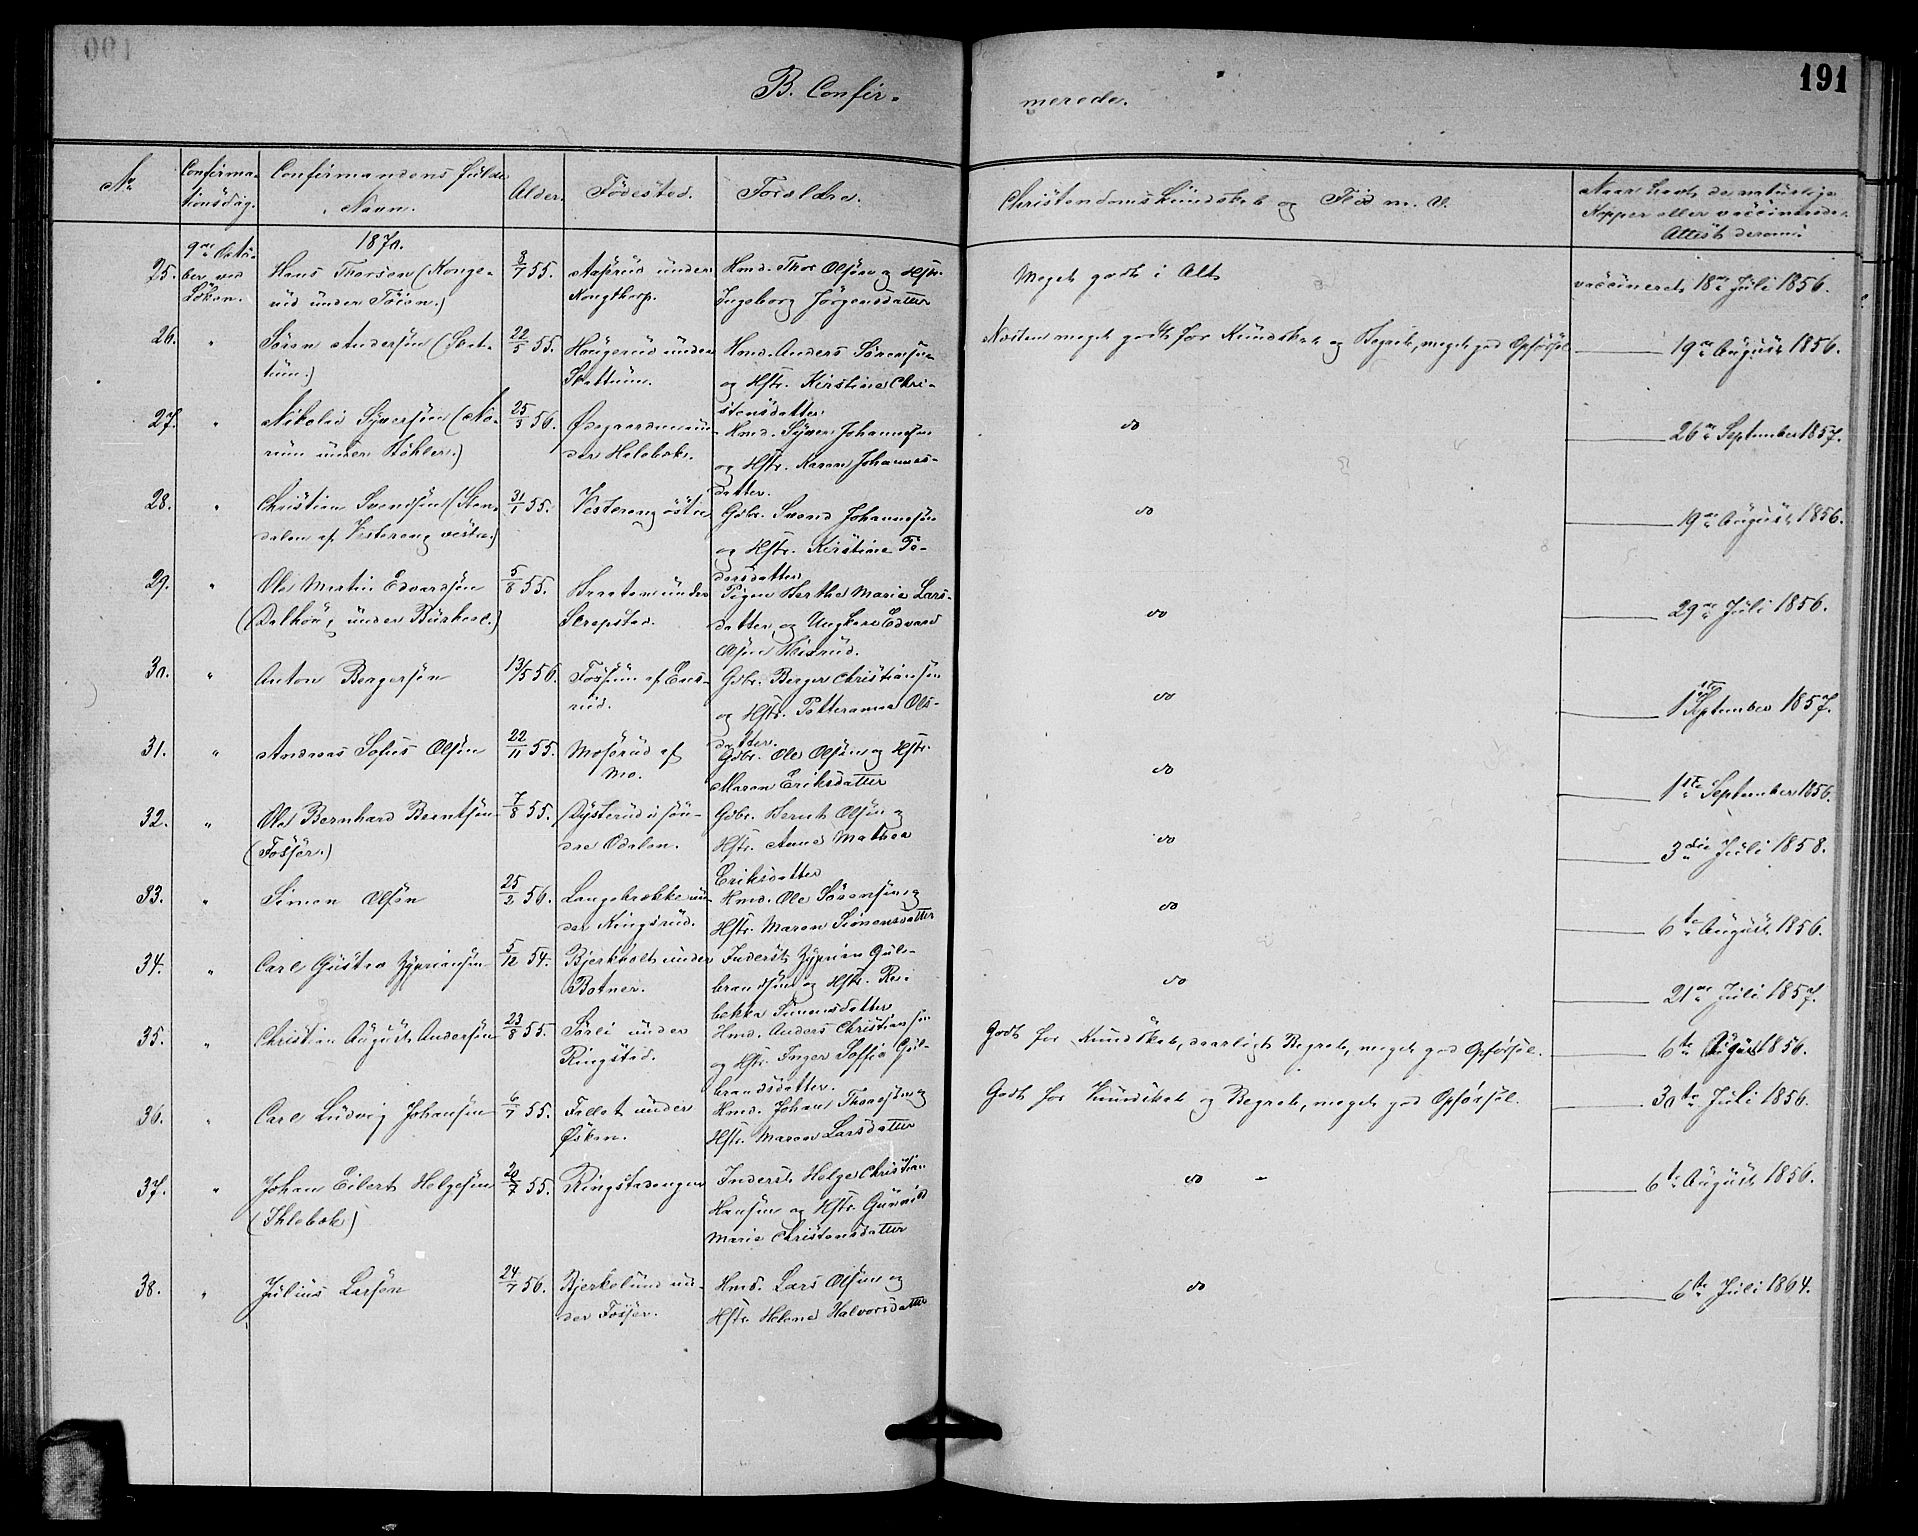 191
B. Confir-
merede.
No
Confirma-
tionsdag.
Confirmandens fulde
Navn.
Alder.
Fødested.
Forældre.
Christendomskundskab og Flid m. V.
Naar havt de naturlige
Kopper eller vaccinerede.
Attest derom.
1870.
25. 9de Octo-
ber ved
Løken.
Hans Thorsen (Konge-
rud under Töien.)
8/7 55.
Aaserud under
Kongthorp.
Hmd. Thor Olsøn og Hstr.
Ingeborg Jörgensdatter
Meget godt i Alt
vaccineret 18de Juli 1856.
26. " Sören Andersön (Skat-
tum.)
22/5 55.
Haugerud under
Skattum.
Hmd. Anders Sörensön
og Hstr. Kirstine Chri-
stensdatter.
Næsten meget godt for Kundskab og Begreb, meget god Opførsel
19de August 1856.
27. " Nikolai Syversön (No-
rum under Köhler.)
25/3 56.
Ødegaarden un-
der Holebæk.
Hmd. Syver Johannesön
og Hstr. Karen Johannes-
datter.
do
26de September 1857.
28. " Christian Svendsön (Sten-
dalen af Vestereng vestre.)
31/1 55.
Vestereng östre
Gbr. Svend Johannesön
og Hstr. Kirstine Pe-
dersdatter
do
19de August 1856.
29. " Ole Martin Edvardsön
(Dalhöi, under Buskerl.)
5/8 55.
Braaten under
Krepstad.
Pigen Berthe Marie Lars-
datter og Ungkarl Edvard
Olsen
do
29de Juli 1856.
30. " Anton Bergersön
13/5 56.
Fossum af Ens-
rud.
Gbr. Berger Christiansön
og Hstr. Petteranna Ols-
datter.
do
1ste September 1857.
31. " Andreas Sofus Olsön
22/11 55.
Moserud af
Mo.
Gbr. Ole Olsön og Hstr.
Maren Eriksdatter
do
1ste September 1856.
32. " Ole Bernhard Berntsön
(Fosser.)
7/8 55.
Dysterud i sön-
dre Odalen.
Gbr. Bernt Olsön og
Hstr. Anne Mathea
Eriksdatter
do
3die Juli 1858.
33. " Simen Olsön
25/2 56.
Langebrække un-
der Kingsrud.
Hmd. Ole Sörensön og
Hstr. Maren Simensdatter
do
6te August 1856.
34. " Carl Gustav Zyprianson
5/12 54.
Bjerkholt under
Botner.
Inderst Zyprian Gul-
brandsön og Hstr. Re-
bekka Simensdatter
do
21de Juli 1857.
35. " Christian August Andersön
23/8 55.
Sörli under
Ringstad.
Hmd. Anders Christiansön
og Hstr. Inger Soffie Gul-
brandsdatter.
Godt for Kundskab, daarligt Begreb, meget god Opførsel.
6te August 1856.
36. " Carl Ludvig Johansön
6/7 55.
Fallet under
Øsken.
Hmd. Johan Thoresön og
Hstr. Maren Larsdatter
Godt for Kundskab og Begreb, meget god Opførsel.
30te Juli 1856.
37. " Johan Eilert Helgesen
(Ihlebæk)
20/7 55.
Ringstadengen
Inderst Helge Christian
Hansen og Hstr. Gunnild
Marie Christensdatter
do
6te August 1856.
38. " Julius Larsen
24/7 56.
Bjerkelund un-
der Fosser.
Hmd. Lars Olsen og
Hstr. Helene Halvorsdatter
do
6te Juli 1864.